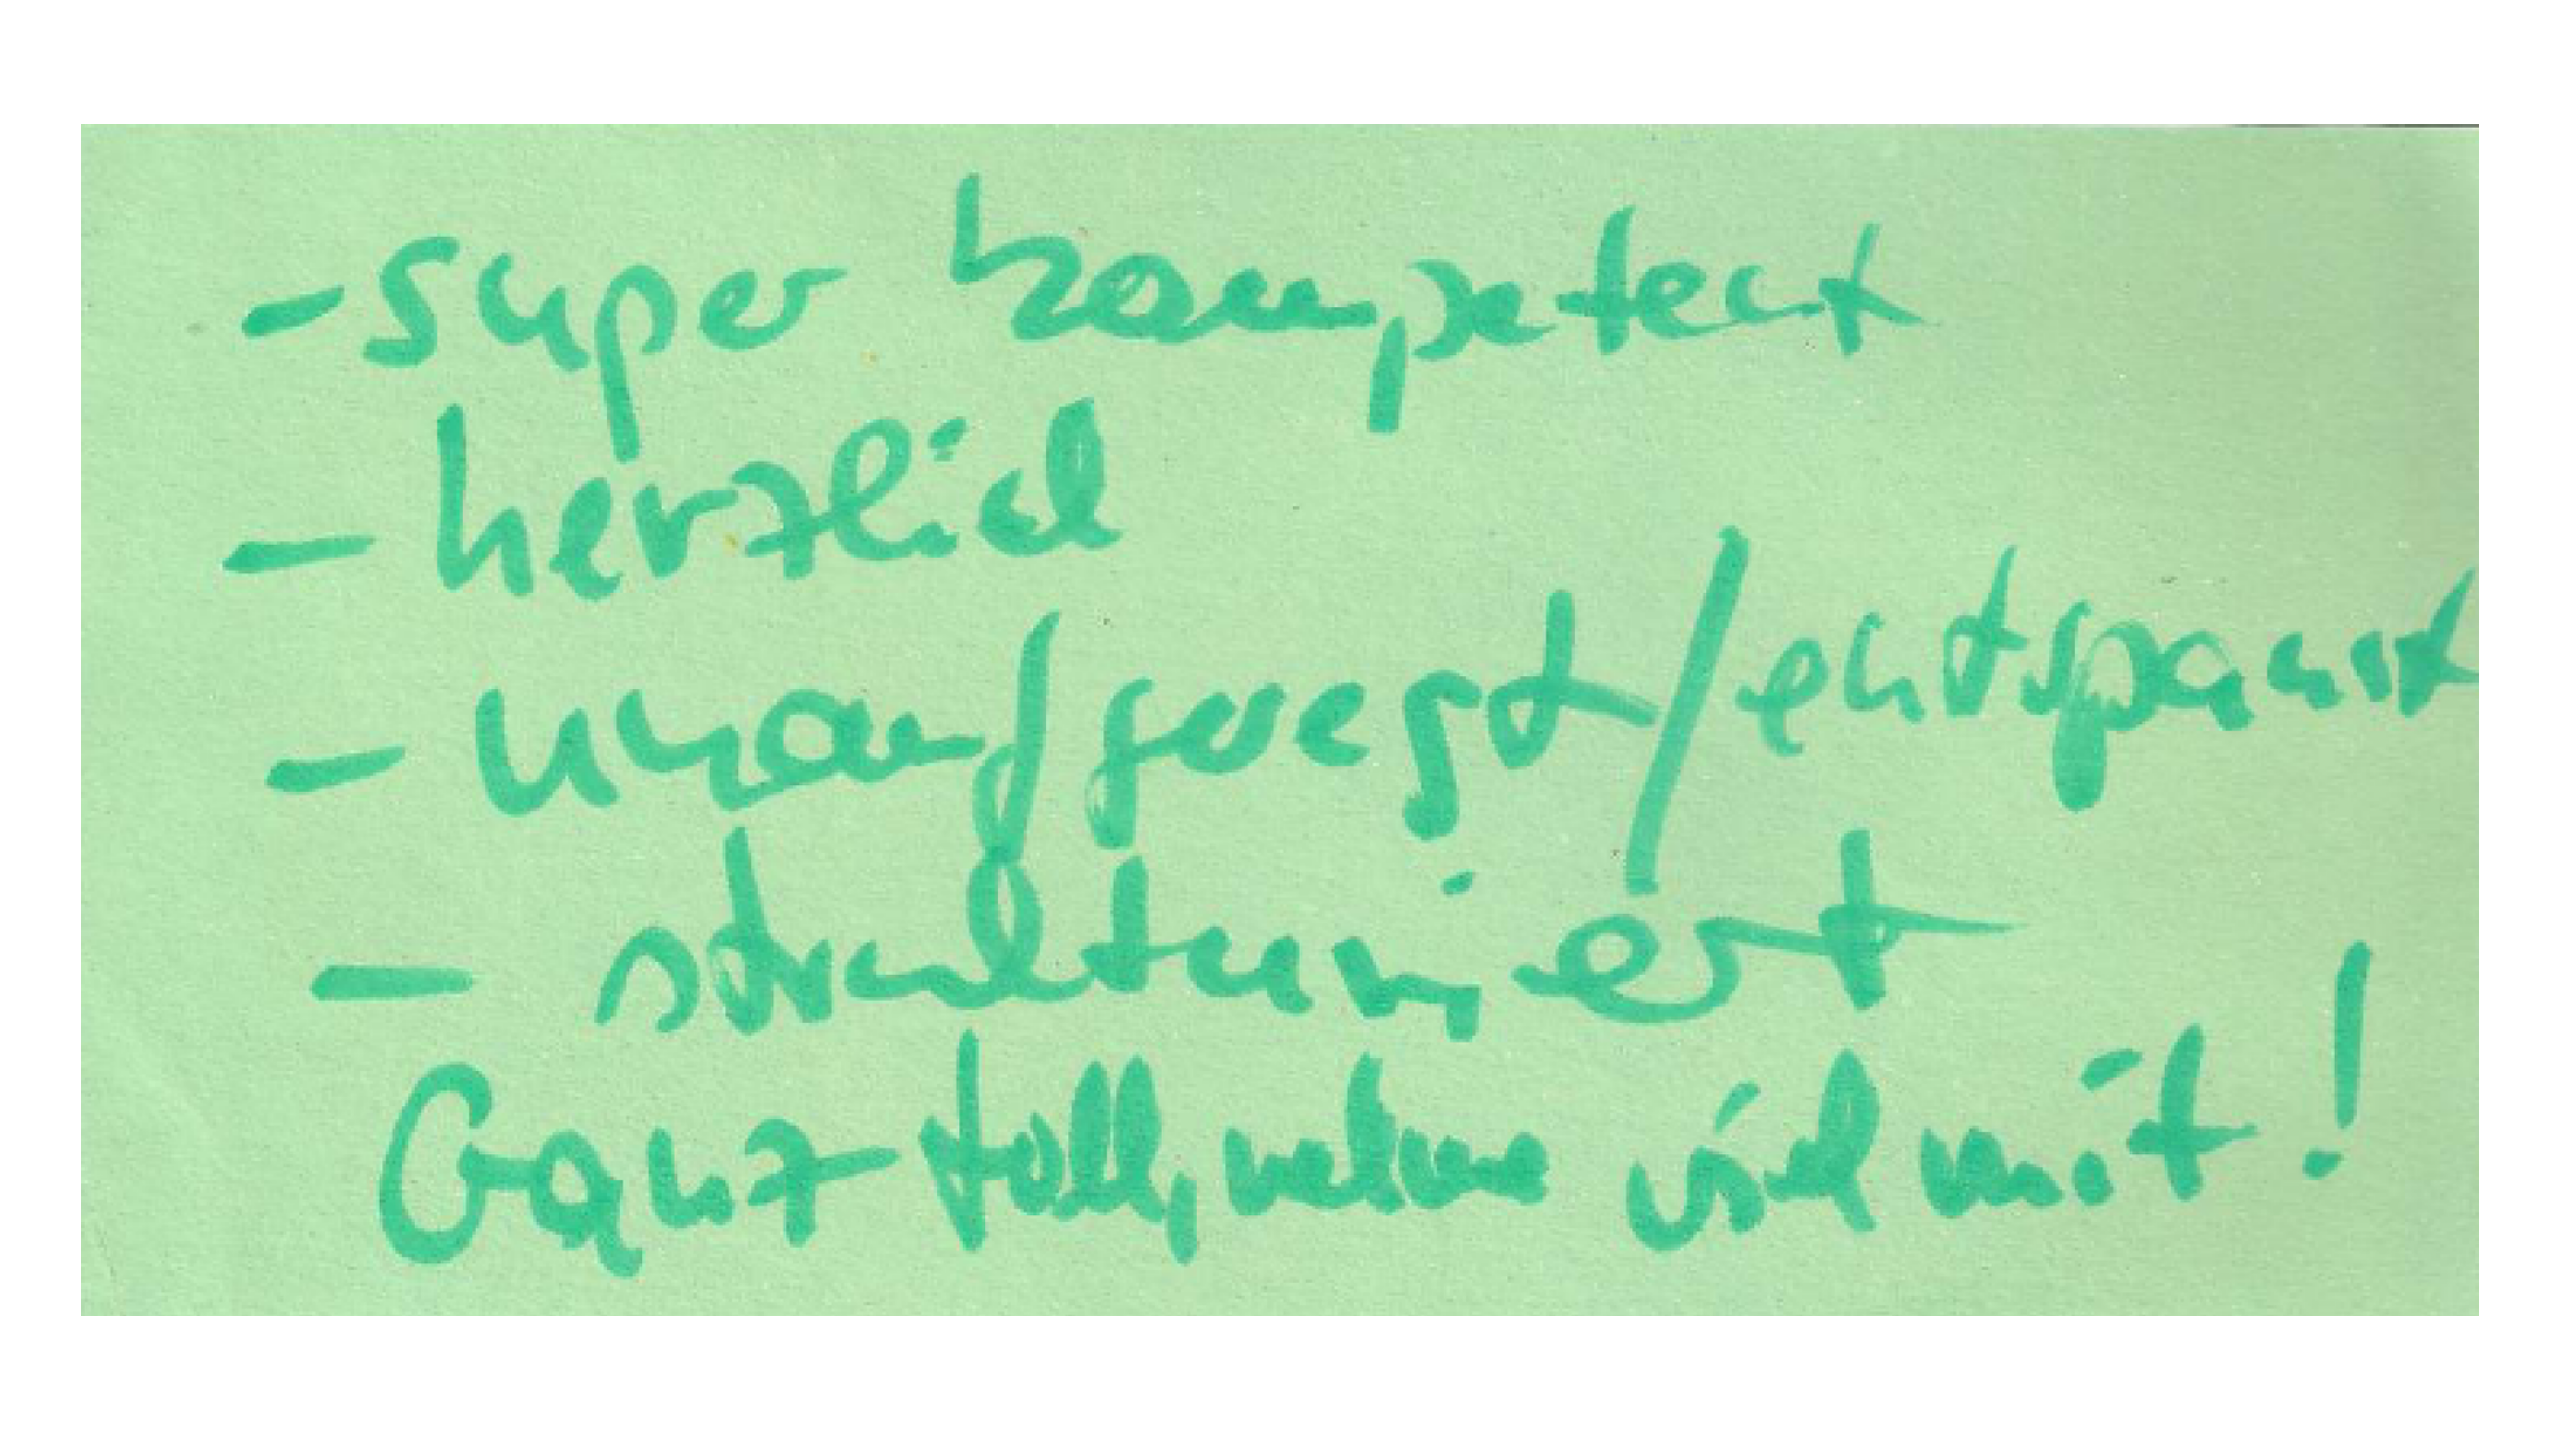 - super kompetent
- herzlich
- unaufgeregt/entspannt
- strukturiert
Ganz toll, nehme viel mit!